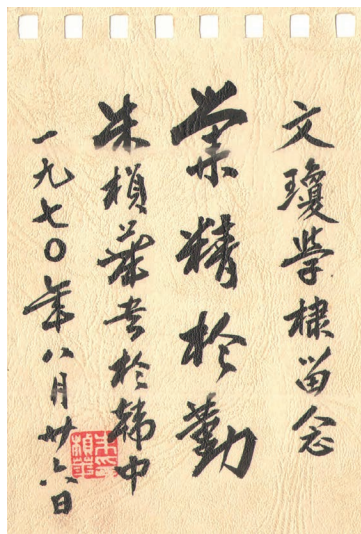 文瓊學棣留念
業精於勤
朱楨華書於韓中
一九七〇年八月廿六日
朱印楨華